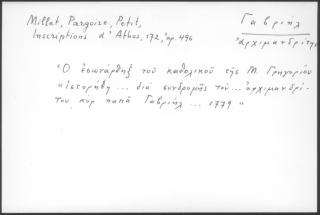 Millet, Pargoire, Petit,
Inscriptions d'Athos, 172, ἀρ. 496
Γαβριήλ
ἀρχιμανδρίτης
"Ὁ ἐσωνάρθηξ τοῦ καθολικοῦ τῆς Μ. Γρηγορίου
«ἱστορήθη ... διὰ συνδρομῆς τοῦ ... ἀρχιμανδρί-
του κὺρ παπᾶ Γαβριήλ ... 1779"